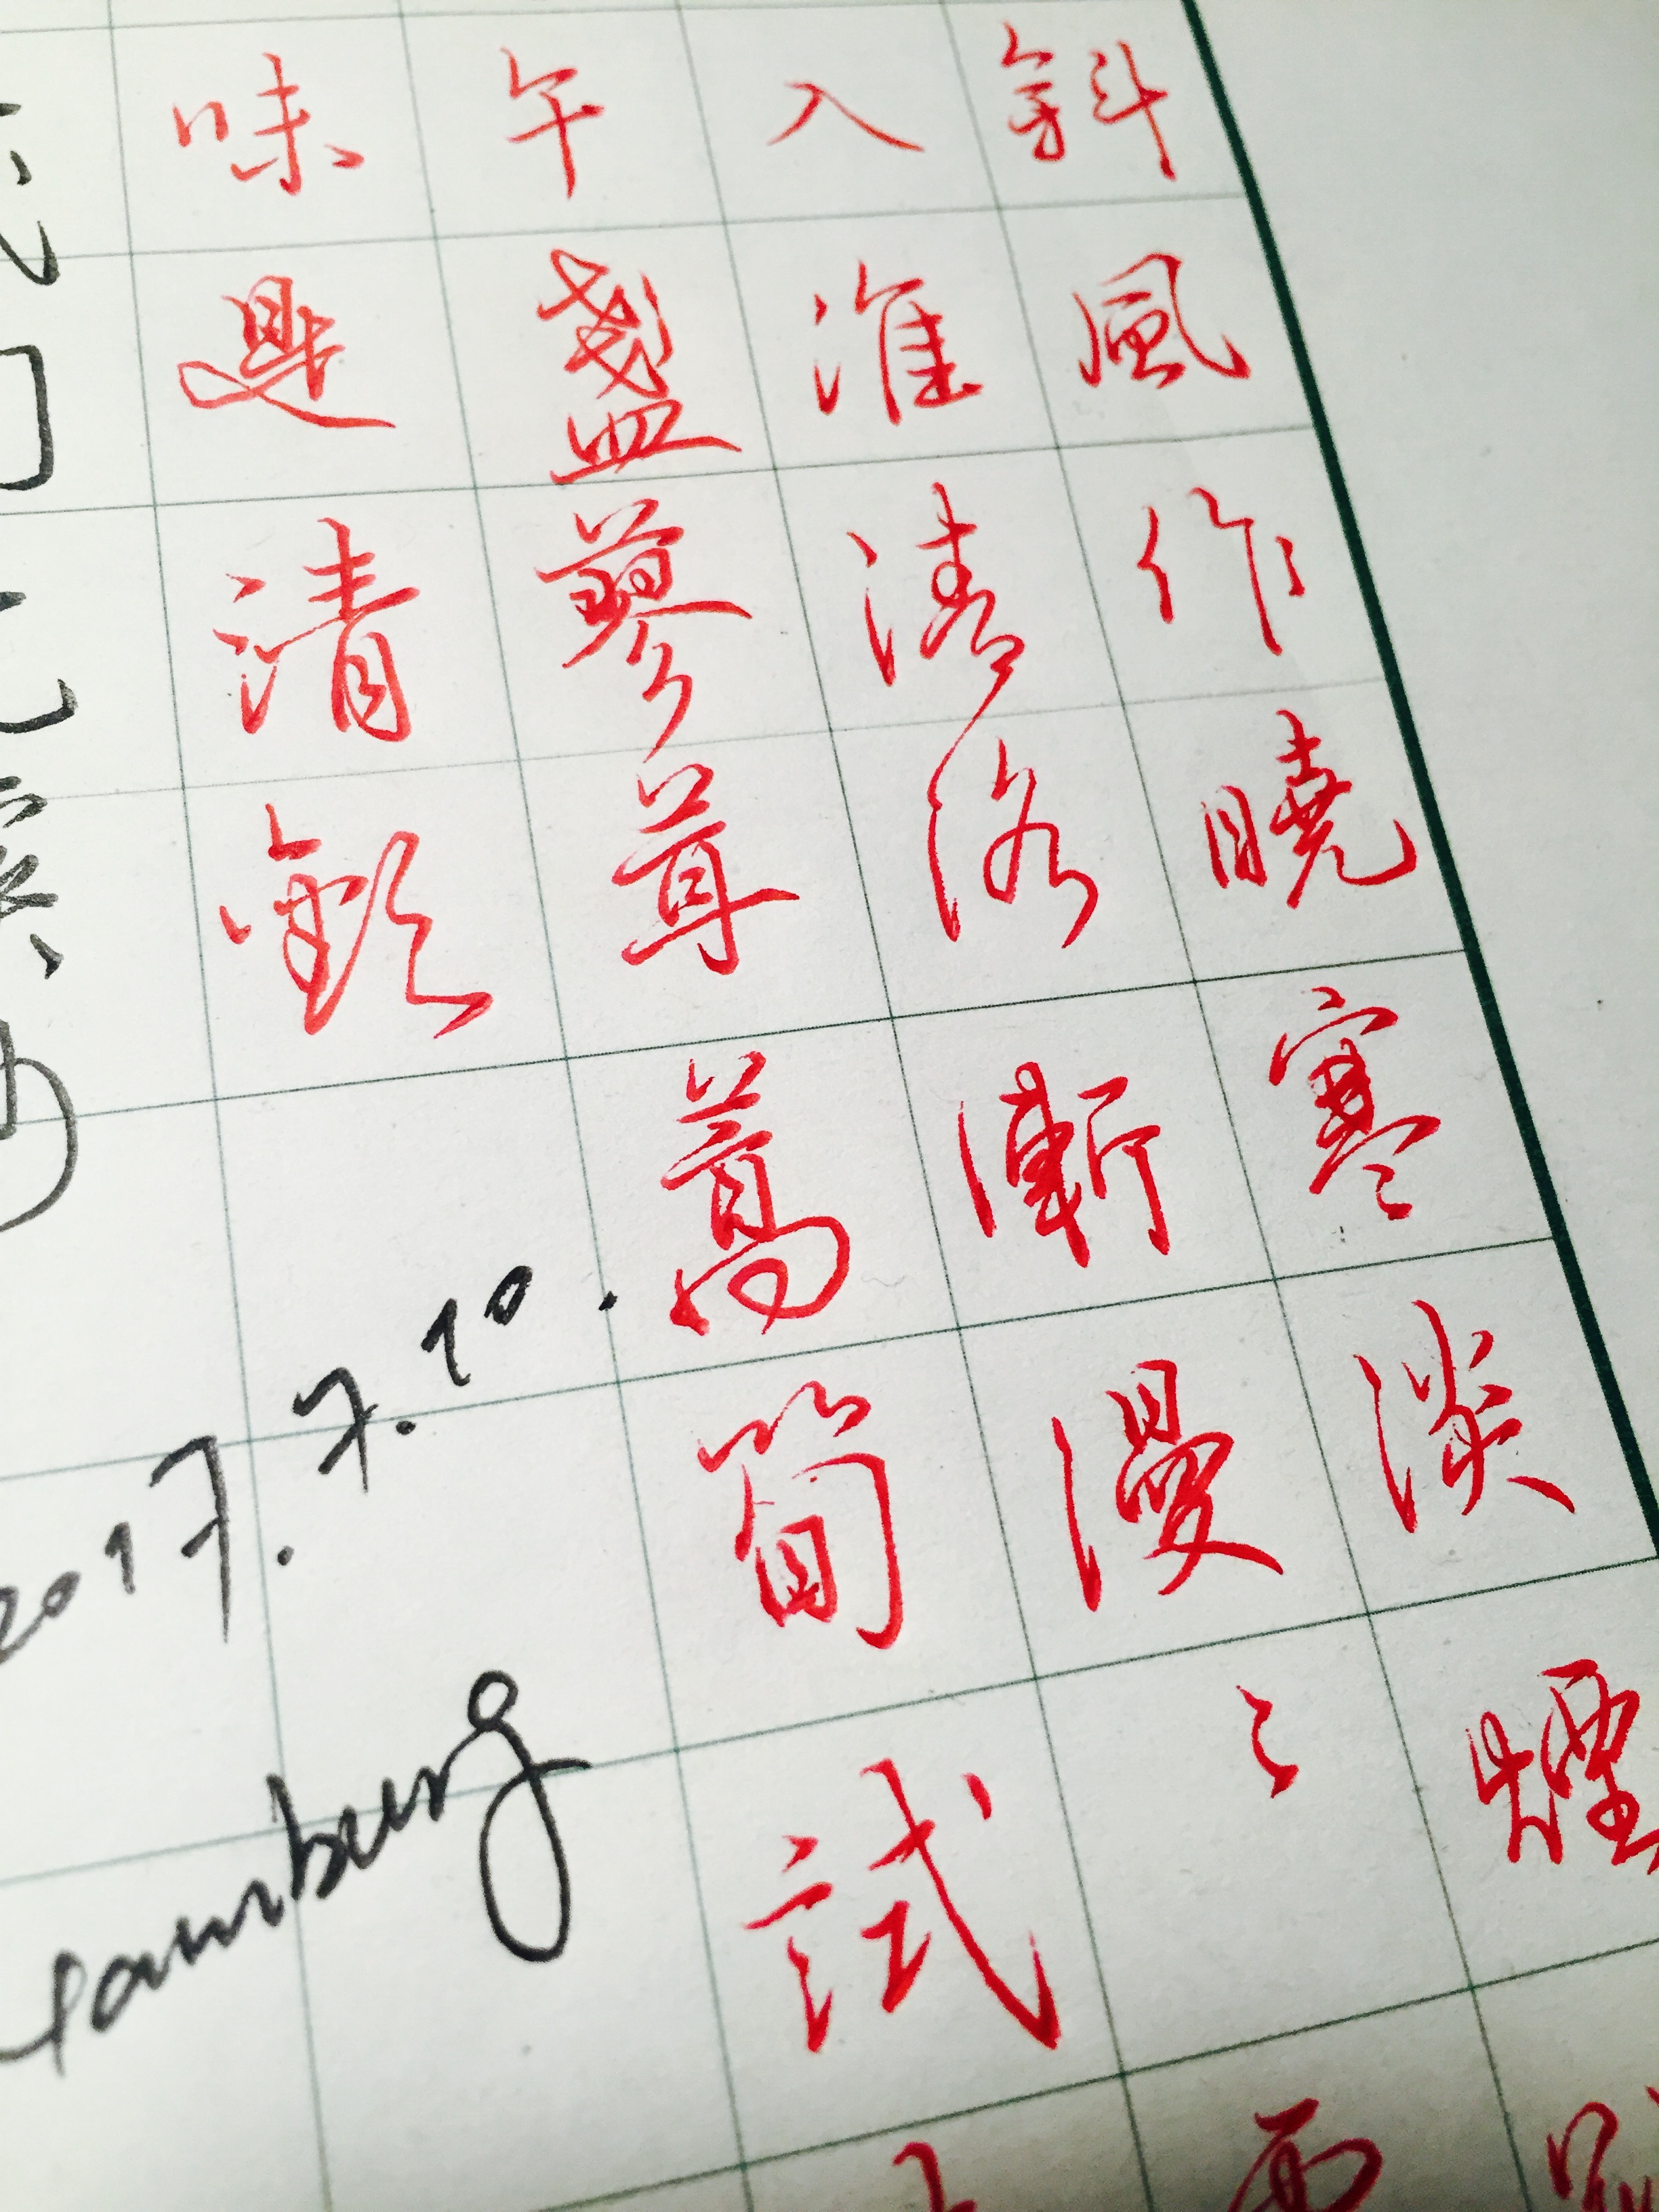 斜風作曉寒淡煙
入淮清洛漸漫々
午盞蓼茸蒿筍試
味是清歡
2017.7.10.
Hamburg